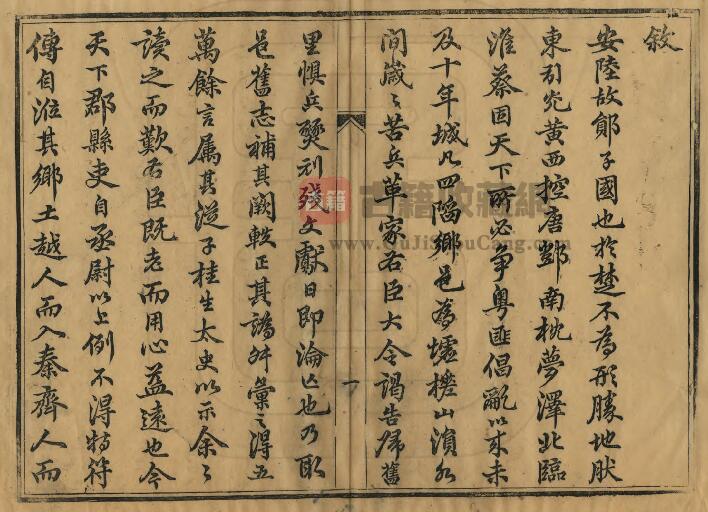 敘
安陸故鄖子國也於楚不為形勝地肰
東引光黃西控唐鄧南枕夢澤北臨
淮蔡固天下所必爭粵匪倡亂以來未
及十年城凡四陷鄉邑為墟摧山濱水
間歲々苦兵革家右臣大令謁告歸舊
里惧兵燹刓殘文獻日即淪亾也乃取
邑舊志補其闕軼正其譌舛彙之得五
萬餘言属其從子桂生太史以示余々
讀之而歎右臣既老而用心益遠也今
天下郡縣吏自丞尉以上例不得特符
傳自涖其鄉土越人而入秦齊人而
一
古籍
古籍收藏網
www.GuJiShouCang.com